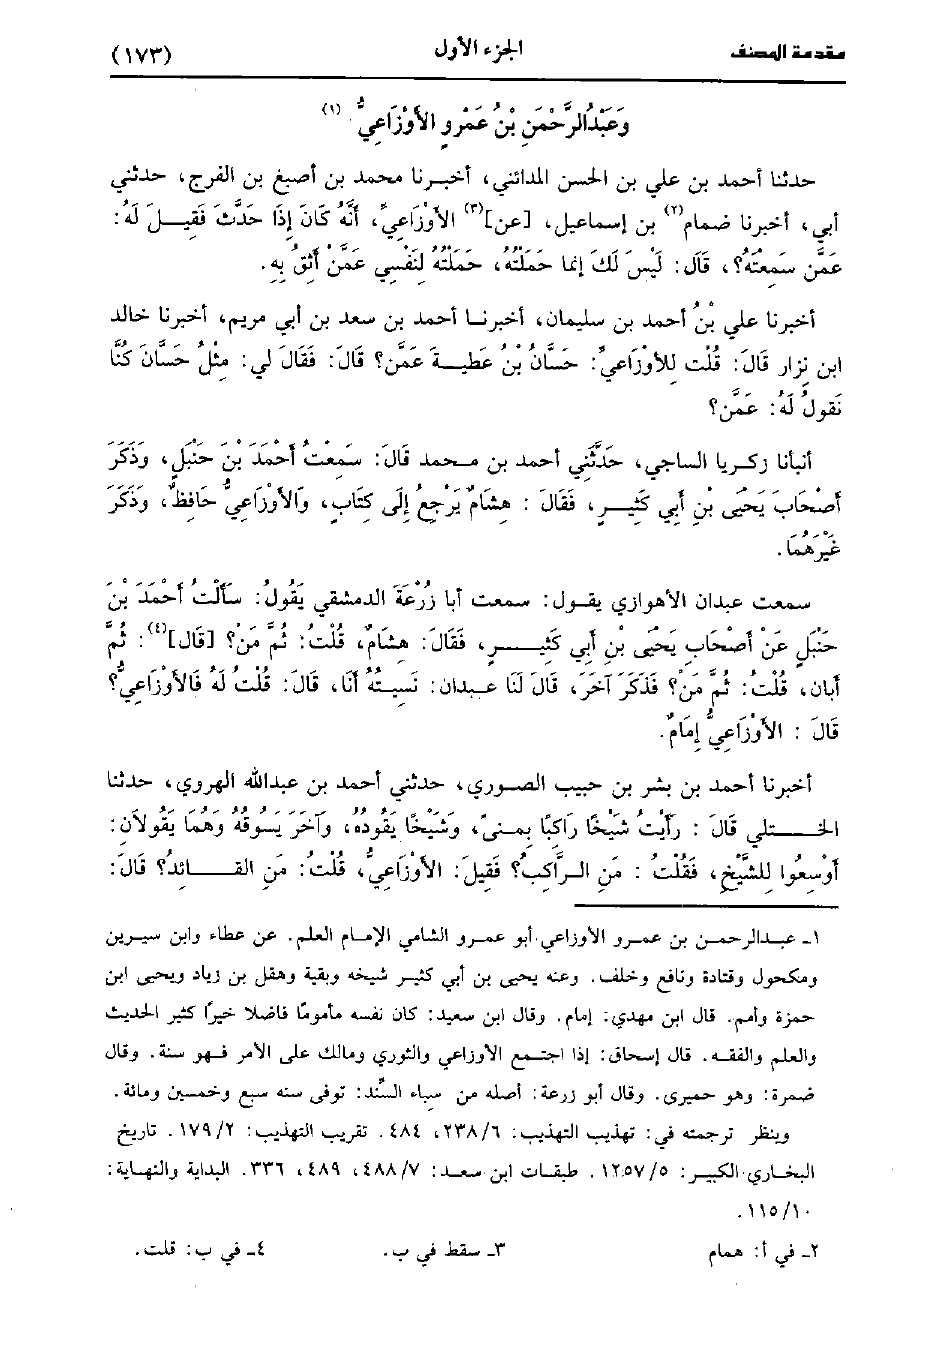 مقدمة المصنف الجزء الأول (١٧٣)
وَعَبْدُالرَّحْمَنِ بْنُ عَمْرٍو الأَوْزَاعِيُّ (١)
حدثنا أحمد بن علي بن الحسن المدائني، أخبرنا محمد بن أصبغ بن الفرج، حدثني
أبي، أخبرنا ضمام(٢) بن إسماعيل، [عن](٣) الأَوْزَاعِيِّ، أَنَّهُ كَانَ إِذَا حَدَّثَ فَقِيلَ لَهُ:
عَمَّن سَمِعْتَهُ؟، قَالَ: لَيْسَ لَكَ إنما حَمَلْتُهُ، حَمَلْتُهُ لِنَفْسِي عَمَّنْ أَثِقُ بِهِ.
أخبرنا علي بْنُ أحمد بن سليمان، أخبرنا أحمد بن سعد بن أبي مريم، أخبرنا خالد
ابن نزار قَالَ: قُلْتُ لِلأَوْزَاعِيِّ: حَسَّانُ بْنُ عَطِيةَ عَمَّن؟ قَالَ: فَقَالَ لي: مثْلُ حَسَّانَ كُنَّا
نَقُولُ لَهُ: عَمَّن؟
أنبأنا زكريا الساجي، حَدَّثَنِي أحمد بن محمد قَالَ: سَمِعْتُ أَحْمَدَ بْنَ حَنْبَلٍ، وَذَكَرَ
أَصْحَابَ يَحْيَى بْنِ أَبِي كَثِيرٍ، فَقَالَ : هِشَامٌ يَرْجِعُ إِلَى كِتَابٍ، وَالأَوْزَاعِيُّ حَافِظٌ، وَذَكَرَ
غَيْرَهُمَا.
سمعت عبدان الأهوازي يقول: سمعت أبا زُرْعَةَ الدمشقي يَقُولُ: سَأَلْتُ أَحْمَدَ بْنَ
حَنْبَلٍ عَنْ أَصْحَابِ يَحْيَى بْنِ أَبِي كَثِيرٍ، فَقَالَ: هِشَامٌ، قُلْتُ: ثُمَّ مَنْ؟ [قال](٤): ثُمَّ
أبان، قُلْتُ: ثُمَّ مَنْ؟ فَذَكَرَ آخَرَ، قَالَ لَنَا عبدان: نَسِيتُهُ أَنَا، قَالَ: قُلْتُ لَهُ فَالأَوْزَاعِيُّ؟
قَالَ : الأَوْزَاعِيُّ إِمَامٌ.
أخبرنا أحمد بن بشر بن حبيب الصوري، حدثني أحمد بن عبدالله الهروي، حدثنا
الختلي قَالَ : رَأَيْتُ شَيْخًا رَاكِبًا بِمنىً، وَشَيْخًا يَقُودُه، وَآخَرَ يَسُوقُهُ وَهُمَا يَقُولاَنِ:
أَوْسِعُوا لِلشَّيْخِ، فَقُلْتُ : مَنِ الرَّاكِبُ؟ فَقِيلَ: الأَوْزَاعِيُّ، قُلْتُ: مَنِ القَائدُ؟ قَالَ:
١ـ عبدالرحمن بن عمرو الأوزاعي أبو عمرو الشامي الإمام العلم. عن عطاء وابن سيرين
ومكحول وقتادة ونافع وخلف. وعنه يحيى بن أبي كثير شيخه وبقية وهقل بن زياد ويحيى ابن
حمزة وأمم. قال ابن مهدي: إمام. وقال ابن سعيد: كان نفسه مأمونًا فاضلا خيرًا كثير الحديث
والعلم والفقه. قال إسحاق: إذا اجتمع الأوزاعي والثوري ومالك على الأمر فهو سنة. وقال
ضمرة: وهو حميرى. وقال أبو زرعة: أصله من سباء السِّند: توفى سنه سبع وخمسين ومائة.
وينظر ترجمته في: تهذيب التهذيب: ٢٣٨/٦، ٤٨٤. تقريب التهذيب: ١٧٩/٢. تاريخ
البخاري الكبير: ١٢٥٧/٥. طبقات ابن سعد: ٤٨٨/٧، ٤٨٩، ٣٣٦. البداية والنهاية:
١١٥/١٠.
٢ـ في أ: همام ٣ـ سقط في ب. ٤ـ في ب: قلت.